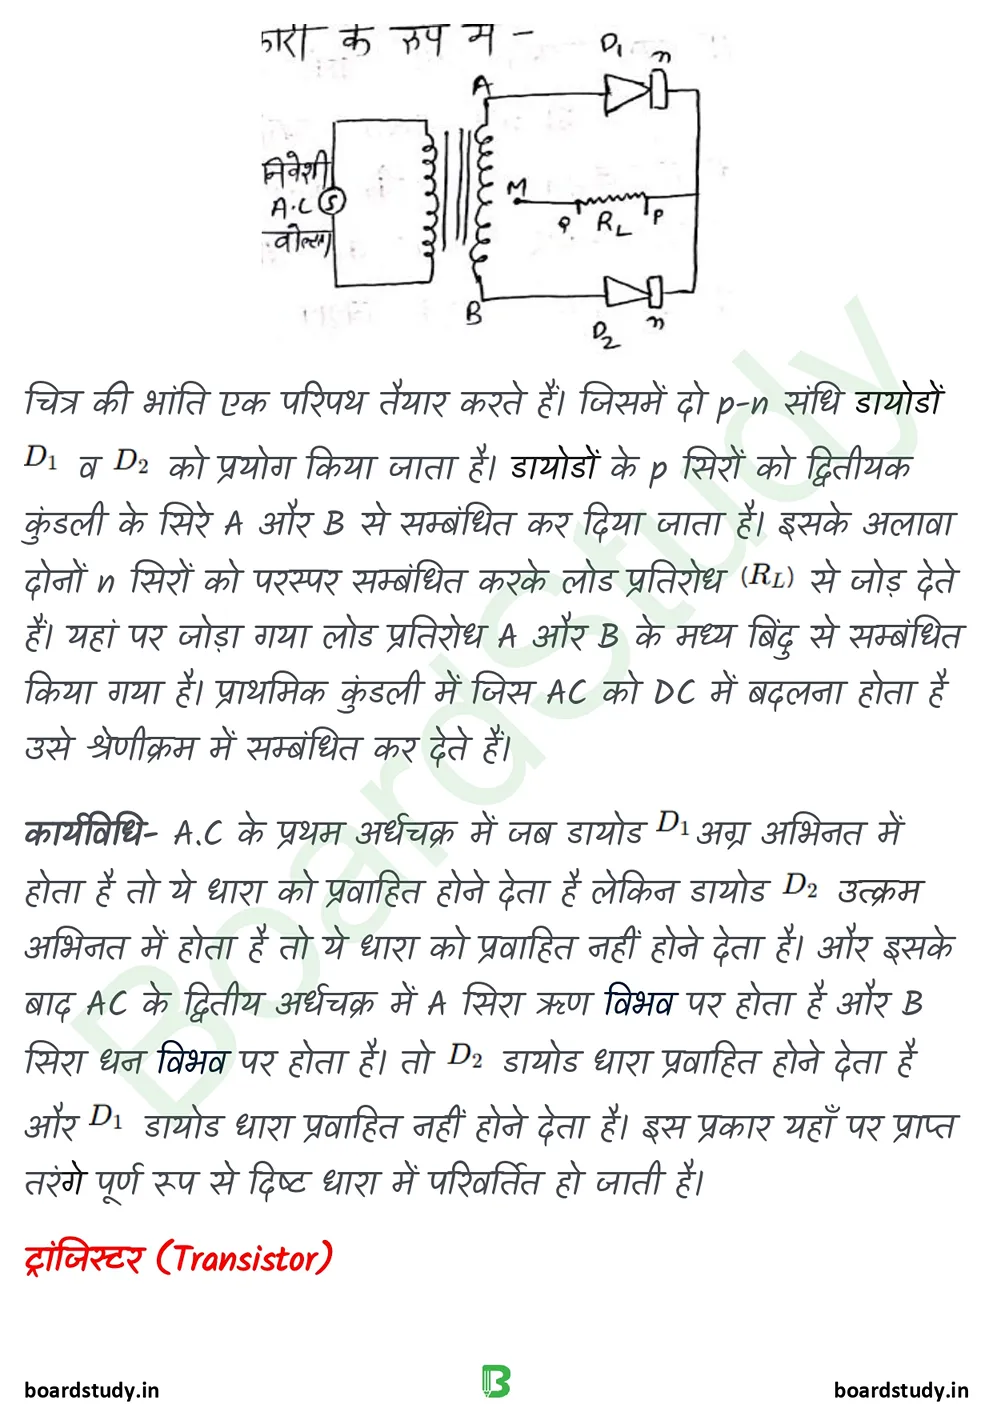 कारी के रूप में -
D1 n
A
निवेशी
A.C S
वोल्टता
M
Q RL P
B
D2 n
चित्र की भांति एक परिपथ तैयार करते हैं। जिसमें दो p-n संधि डायोडों
D1 व D2 को प्रयोग किया जाता है। डायोडों के p सिरों को द्वितीयक
कुंडली के सिरे A और B से सम्बंधित कर दिया जाता है। इसके अलावा
दोनों n सिरों को परस्पर सम्बंधित करके लोड प्रतिरोध (RL) से जोड़ देते
हैं। यहां पर जोड़ा गया लोड प्रतिरोध A और B के मध्य बिंदु से सम्बंधित
किया गया है। प्राथमिक कुंडली में जिस AC को DC में बदलना होता है
उसे श्रेणीक्रम में सम्बंधित कर देते हैं।
कार्यविधि- A.C के प्रथम अर्धचक्र में जब डायोड D1 अग्र अभिनत में
होता है तो ये धारा को प्रवाहित होने देता है लेकिन डायोड D2 उत्क्रम
अभिनत में होता है तो ये धारा को प्रवाहित नहीं होने देता है। और इसके
बाद AC के द्वितीय अर्धचक्र में A सिरा ऋण विभव पर होता है और B
सिरा धन विभव पर होता है। तो D2 डायोड धारा प्रवाहित होने देता है
और D1 डायोड धारा प्रवाहित नहीं होने देता है। इस प्रकार यहाँ पर प्राप्त
तरंगे पूर्ण रूप से दिष्ट धारा में परिवर्तित हो जाती है।
ट्रांजिस्टर (Transistor)
BoardStudy
boardstudy.in B boardstudy.in